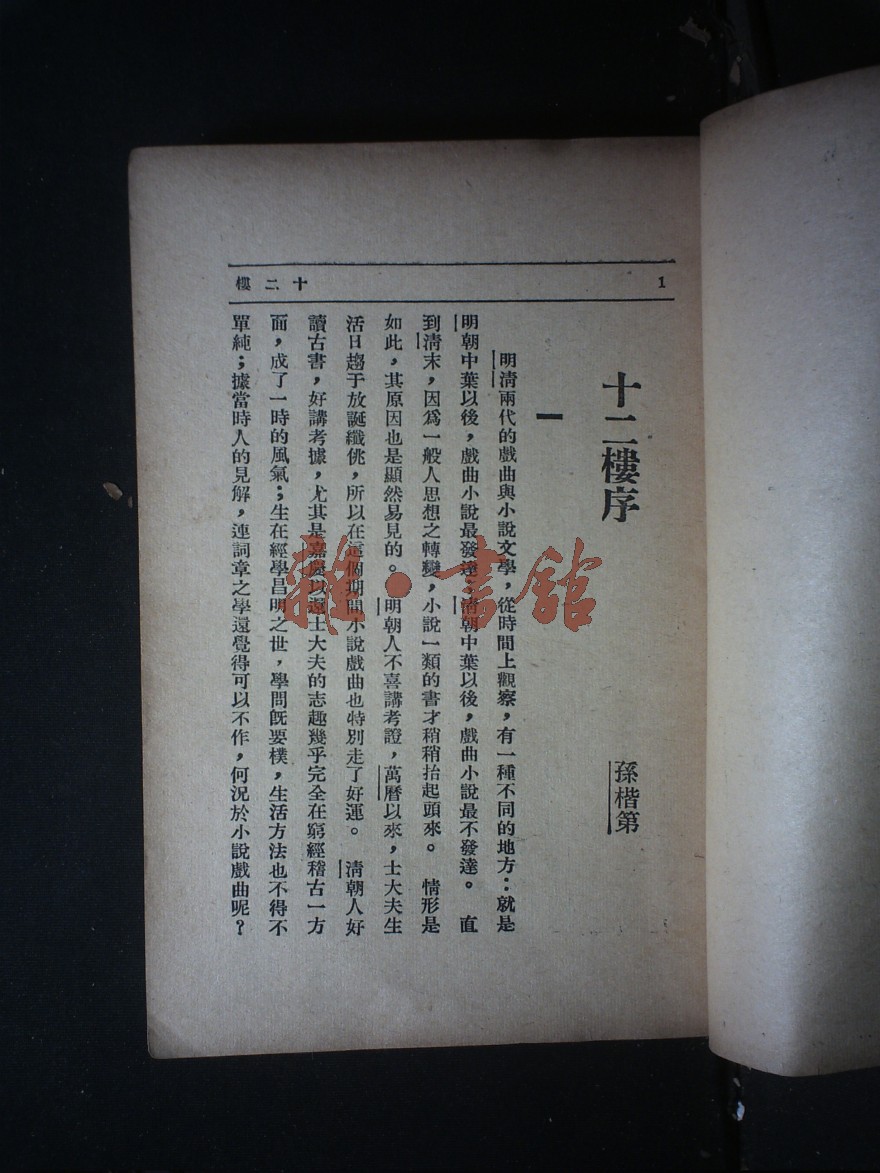 1
十二樓
十二樓序
孫楷第
一
明清兩代的戲曲與小說文學，從時間上觀察，有一種不同的地方：就是
明朝中葉以後，戲曲小說最發達；清朝中葉以後，戲曲小說最不發達。直
到清末，因爲一般人思想之轉變，小說一類的書才稍稍抬起頭來。情形是
如此，其原因也是顯然易見的。明朝人不喜講考證，萬曆以來，士大夫生
活日趨于放誕纖佻，所以在這個期間小說戲曲也特別走了好運。清朝人好
讀古書，好講考據，尤其是嘉慶以還士大夫的志趣幾乎完全在窮經稽古一方
面，成了一時的風氣；生在經學昌明之世，學問旣要樸，生活方法也不得不
單純；據當時人的見解，連詞章之學還覺得可以不作，何況於小說戲曲呢？
雜·書館